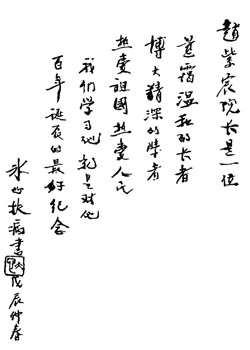 趙紫宸院长是一位
蔼温和的长者
博大精深的學者
热爱祖國热爱人民
我们学习他就是对他
百年诞辰的最好纪念
冰心扶病書 戊辰仲春